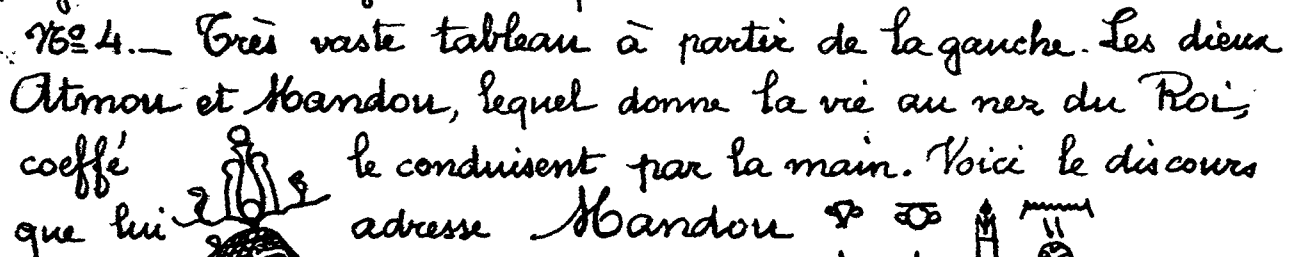 Nº 4. — Très vaste tableau à partir de la gauche. Les dieux
Atmou et Mandou, lequel donne la vie au nez du Roi,
coeffé le conduisent par la main. Voici le discours
que lui adresse Mandou